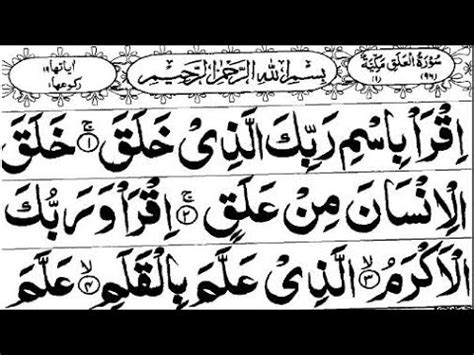 سُوْرَةُ الْعَلَقِ مَكِّيَّةٌ
(٩٦) (١)
بِسْمِ اللهِ الرَّحْمٰنِ الرَّحِيْمِ
اٰياتها ١٩
ركوعها ١
اِقْرَاْ بِاسْمِ رَبِّكَ الَّذِىْ خَلَقَ ۚ ﴿١﴾ خَلَقَ
الْاِنْسَانَ مِنْ عَلَقٍ ۚ ﴿٢﴾ اِقْرَاْ وَرَبُّكَ
الْاَكْرَمُ ۙ ﴿٣﴾ الَّذِىْ عَلَّمَ بِالْقَلَمِ ۙ ﴿٤﴾ عَلَّمَ